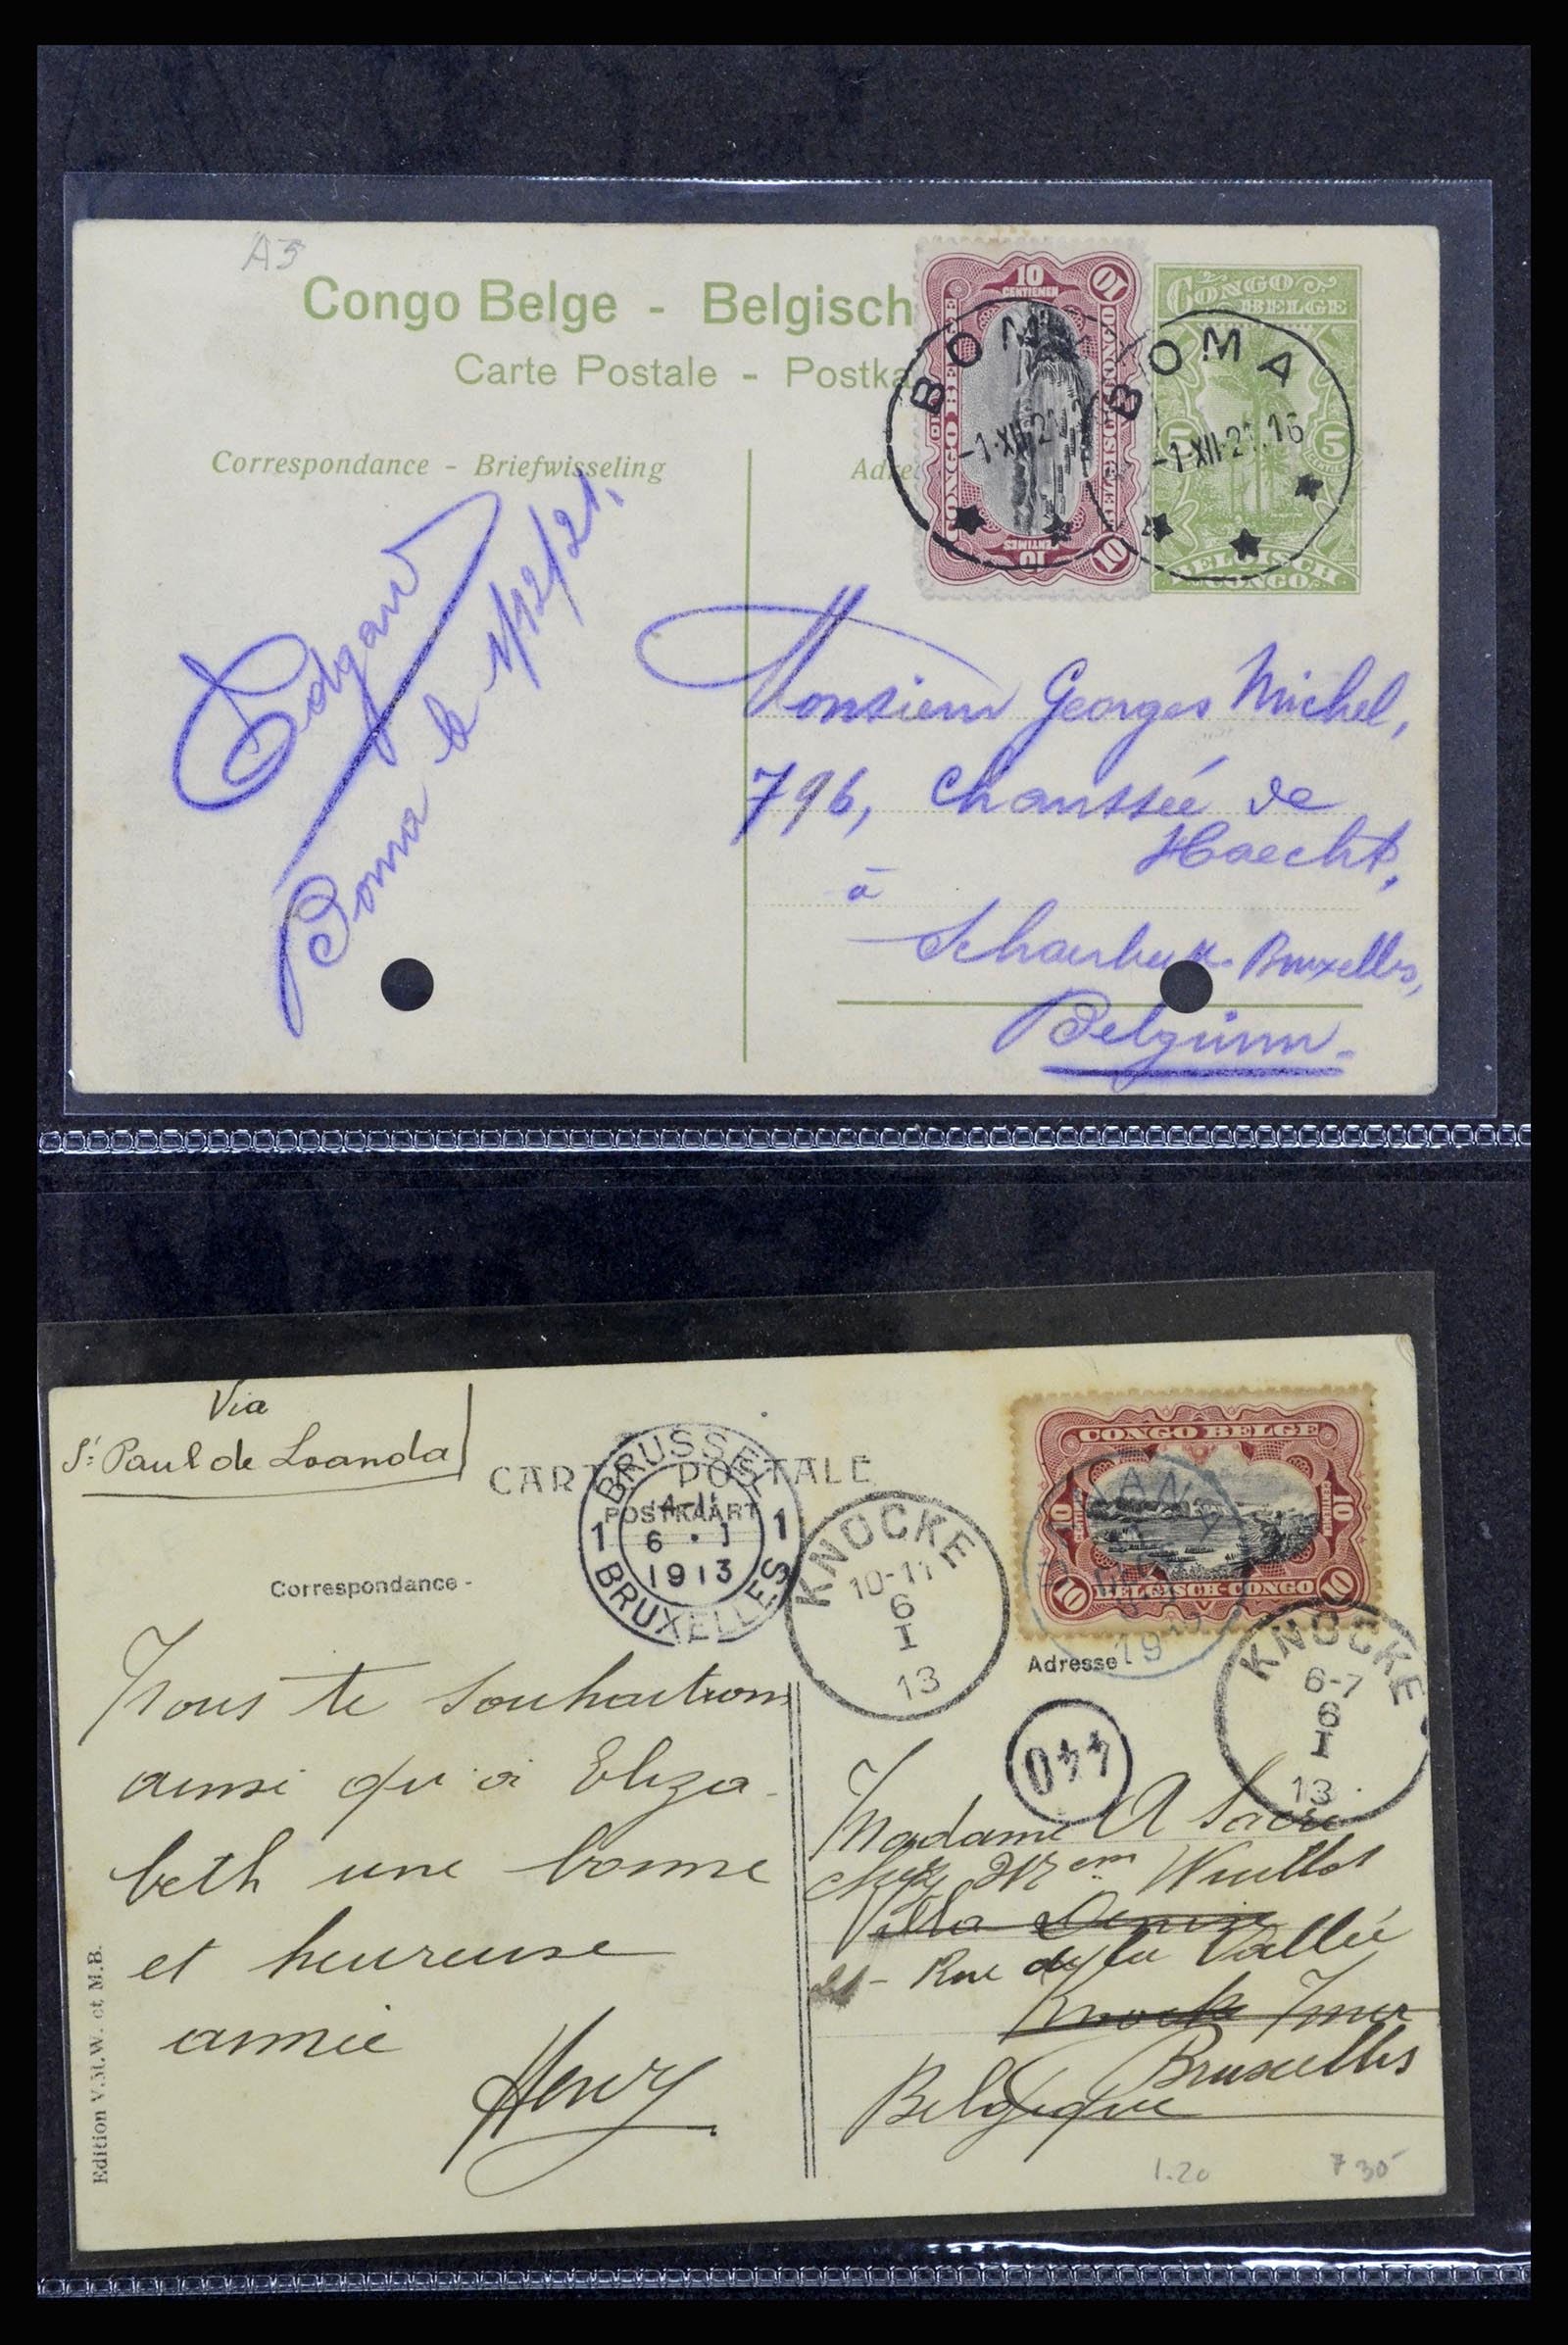 A5
Congo Belge - Belgisch
Carte Postale - Postka
10
CENTIEMEN
10
CONGO BELGE
BELGISCH-CONGO
10
CENTIMES
10
CONGO
BELGE
5
5
BELGISCH
CONGO
BOMA
-1·XII·21
BOMA
-1·XII·21.16
Correspondance - Briefwisseling
Adre
Edgard
Boma le 1/12/21.
Monsieur Georges Michel,
796, Chaussée de
Haecht,
à
Schaerbeek-Bruxelles,
Belgium.
Via
St Paul de Loanda
CARTE POSTALE
POSTKAART
BRUSSEL
1 1
6 · I
1913
BRUXELLES
KNOCKE
10-11
6
I
13
CONGO BELGE
10
10
10 BELGISCH-CONGO 10
KNOCKE
6-7
6
I
13
Correspondance -
Adresse
440
Nous te souhaitions
ainsi qu'à Eliza-
beth une bonne
et heureuse
année
Henry
Madame A
chez Mr
Villa Denise
21 - Rue de la Vallée
Knocke s/mer
Bruxelles
Belgique
Edition V.M.W. et M.B.
1.20
7 30